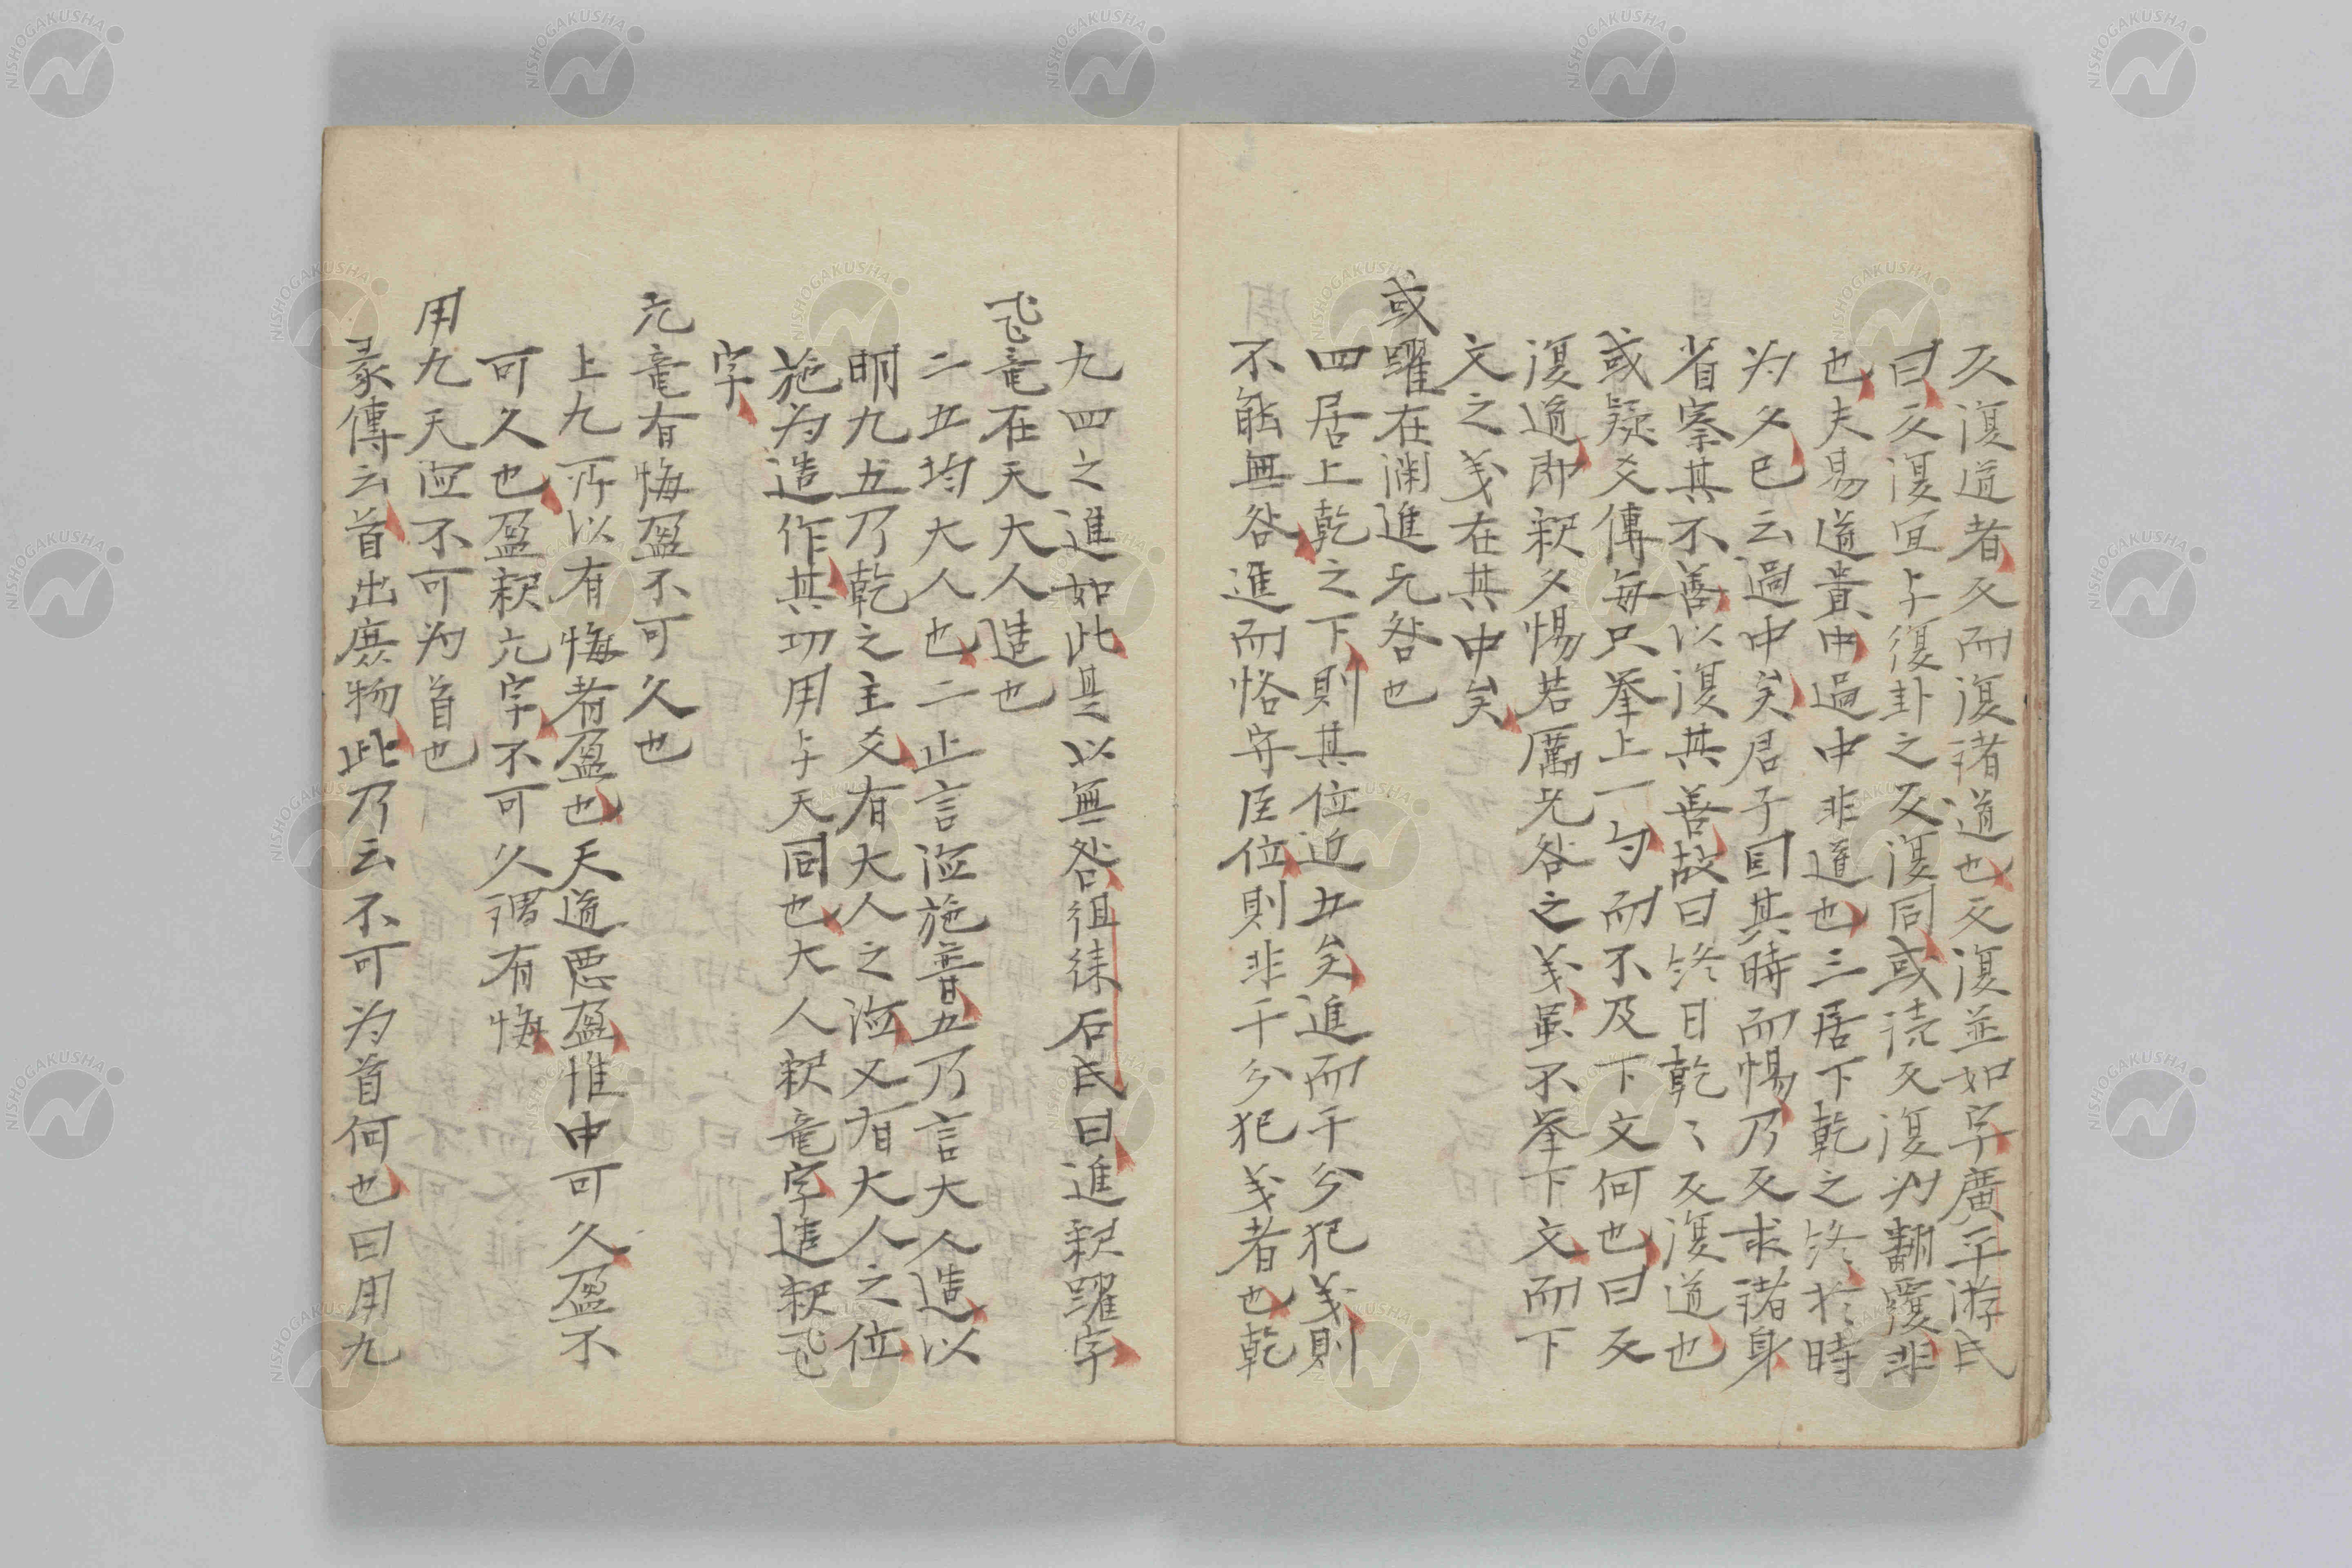 反復道者反而復諸道也反復並如字廣平游氏
曰反復宜与復卦之反復同或読反復为翻覆非
也夫易道貴中過中非道也三居下乾之終於時
为夕已云過中矣君子因其時而惕乃反求諸身
省察其不善以復其善故曰終日乾〻反復道也
或疑爻傳每只挙上一句而不及下文何也曰反
復道即釈夕惕若厲无咎之義虽不挙下文而下
文之義在其中矣
或躍在渊進无咎也
四居上乾之下則其位近五矣進而干分犯義則
不能無咎進而恪守臣位則非干分犯義者也乾
九四之進如此是以無咎徂徕石氏曰進釈躍字
飞竜在天大人造也
二五均大人也二止言徳施普五乃言大人造以
明九五乃乾之主爻有大人之徳又有大人之位
施为造作其功用与天同也大人釈竜字造釈飞
字
亢竜有悔盈不可久也
上九所以有悔者盈也天道悪盈惟中可久盈不
可久也盈釈亢字不可久謂有悔
用九天徳不可为首也
彖傳云首出庶物此乃云不可为首何也曰用九
NISHOGAKUSHA